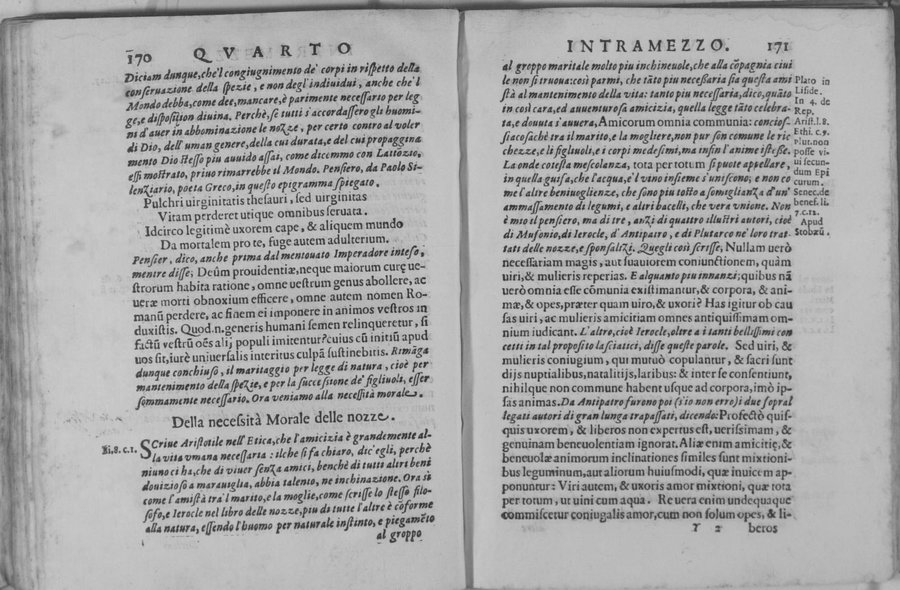 170 QVARTO
Diciam dunque, che'l congiugnimento de' corpi in rispetto della
conseruazione della spezie, e non degl'indiuidui, anche che'l
Mondo debba, come dee, mancare, è parimente necessario per leg
ge, e disposition diuina. Perchè, se tutti s'accordassero gli huomi-
ni d'auer in abbominazione le nozze, per certo contro al voler
di Dio, dell'uman genere, della cui durata, e del cui propaggina
mento Dio stesso piu auuido assai, come dicemmo con Lattozio,
essi mostrato, priuo rimarrebbe il Mondo. Pensiero, da Paolo Si-
lenziario, poeta Greco, in questo epigramma spiegato.
Pulchri uirginitatis thesauri, sed uirginitas
Vitam perderet utique omnibus seruata.
Idcirco legitimè uxorem cape, & aliquem mundo
Da mortalem pro te, fuge autem adulterium.
Pensier, dico, anche prima dal mentouato Imperadore inteso,
mentre disse; Deûm prouidentiæ, neque maiorum curę ue-
strorum habita ratione, omne uestrum genus abollere, ac
ueræ morti obnoxium efficere, omne autem nomen Ro-
manũ perdere, ac finem ei imponere in animos vestros in
duxistis. Quod.n.generis humani semen relinqueretur, si
factũ vestrũ oẽs alij populi imitentur? cuius cũ initiũ apud
uos sit, iurè uniuersalis interitus culpã sustinebitis. Rimãga
dunque conchiuso, il maritaggio per legge di natura, cioè per
mantenimento della spezie, e per la successione de' figliuoli, esser
sommamente necessario. Ora veniamo alla necessità morale.
Della necessità Morale delle nozze.
li.8.c.1.
SCriue Aristotile nell'Etica, che l'amicizia è grandemente al-
la vita vmana necessaria: ilche si fa chiaro, dic'egli, perchè
niuno ci ha, che di viuer senza amici, benchè di tutti altri beni
douizioso a marauiglia, abbia talento, ne inchinazione. Ora si
come l'amistà tra'l marito, e la moglie, come scrisse lo stesso filo-
sofo, e Ierocle nel libro delle nozze, piu di tutte l'altre è cõforme
alla natura, essendo l'huomo per naturale instinto, e piegamẽto
al groppo
INTRAMEZZO. 171
al groppo maritale molto piu inchineuole, che alla cõpagnia ciui
le non si truoua: così parmi, che tãto piu necessaria sia questa ami
stà al mantenimento della vita: tanto piu necessaria, dico, quãto
in così cara, ed auuenturosa amicizia, quella legge tãto celebra-
ta, e douuta s'auuera, Amicorum omnia communia: concios-
siacosachè tra il marito, e la mogliere, non pur son comune le ric
chezze, e li figliuoli, e i corpi medesimi, ma infin l'anime istesse.
La onde cotesta mescolanza, tota per totum si puote appellare,
in quella guisa, che l'acqua, e'l vino insieme s'uniscono; e non co
me l'altre beniuoglienze, che sono piu tosto a somiglianza d'un'
ammassamento di legumi, e altri bacelli, che vera vnione. Non
è mio il pensiero, ma di tre, anzi di quattro illustri autori, cioè
di Musonio, di Ierocle, d'Antipatro, e di Plutarco ne' loro trat-
tati delle nozze, e sponsalizi. Quegli così scrisse, Nullam uerò
necessariam magis, aut suauiorem coniunctionem, quàm
uiri, & mulieris reperias. E alquanto piu innanzi; quibus nã
uerò omnia esse cõmunia existimantur, & corpora, & ani-
mæ, & opes, præter quam uiro, & uxori? Has igitur ob cau
sas uiri, ac mulieris amicitiam omnes antiquissimam om-
nium iudicant. L'altro, cioè Ierocle, oltre a i tanti bellissimi con
cetti in tal proposito lasciatici, disse queste parole. Sed uiri, &
mulieris coniugium, qui mutuò copulantur, & sacri sunt
dijs nuptialibus, natalitijs, laribus: & inter se consentiunt,
nihilque non commune habent usque ad corpora, imò ip-
sas animas. Da Antipatro furono poi (s'io non erro) i due sopral
legati autori di gran lunga trapassati, dicendo: Profectò quis-
quis uxorem, & liberos non expertus est, uerissimam, &
genuinam beneuolentiam ignorat. Aliæ enim amicitię, &
beneuolæ animorum inclinationes similes sunt mixtioni-
bus leguminum, aut aliorum huiusmodi, quæ inuicem ap-
ponuntur: Viri autem, & uxoris amor mixtioni, quæ tota
per totum, ut uini cum aqua. Re uera enim undequaque
commiscetur coniugalis amor, cum non solum opes, & li-
Y 2 beros
Plato in
Liside.
In 4. de
Rep.
Arist.l.8
Ethi. c.9.
Plut. non
posse vi
ui secun-
dum Epi
curum.
Senec.de
benef. li.
7.c.12.
Apud
Stobæũ.